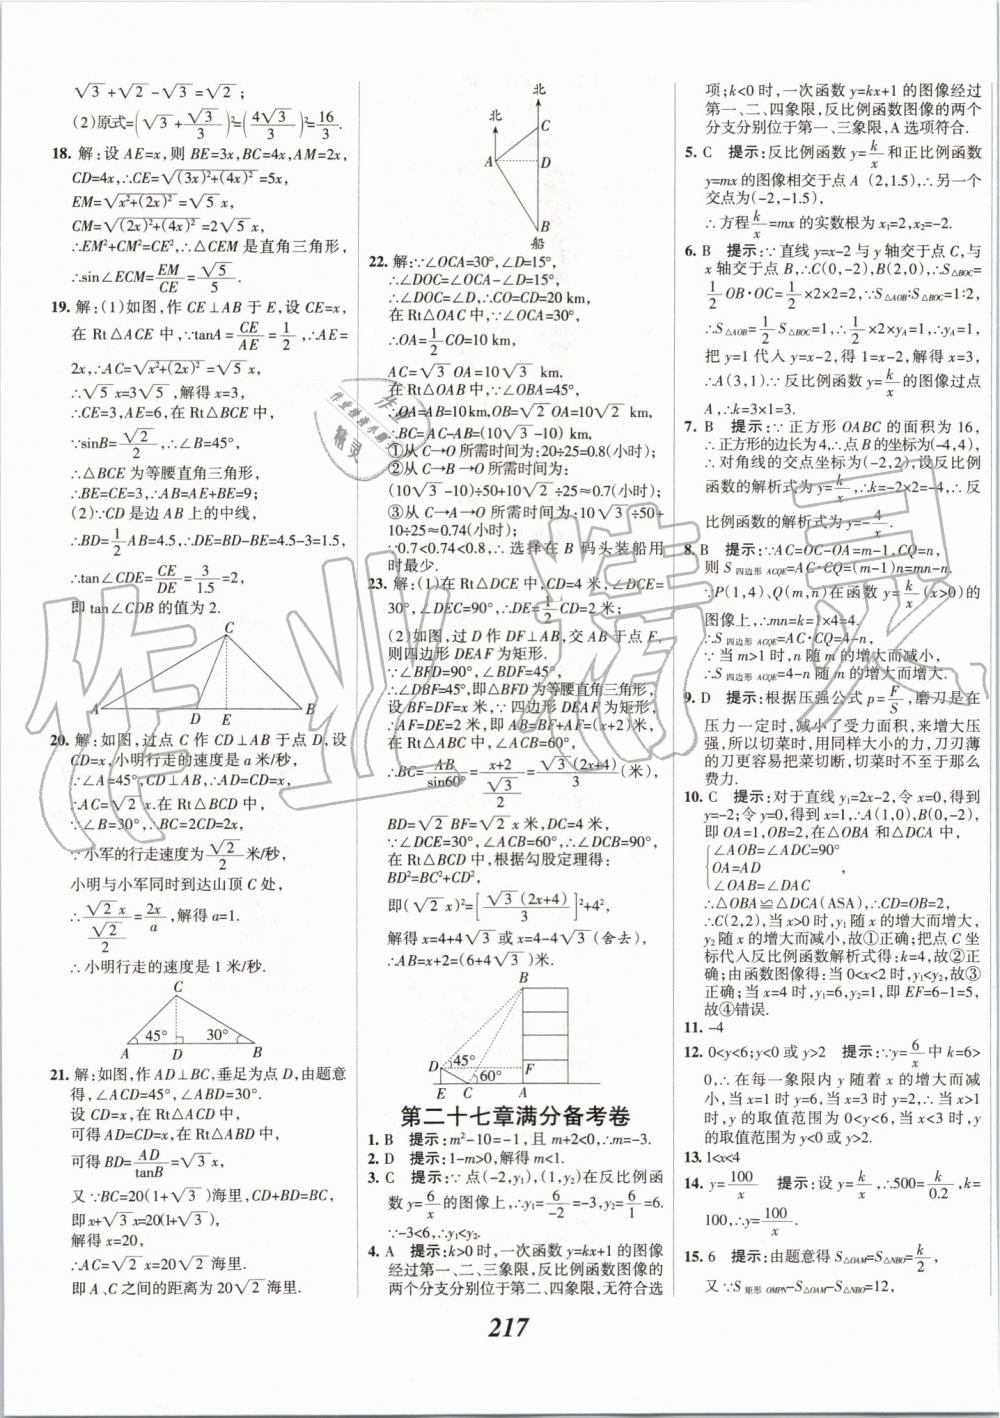 √3+√2-√3=√2;
(2)原式=(√3+√3/3)²=(4√3/3)²=16/3.
18. 解:设AE=x,则BE=3x,BC=4x,AM=2x,
CD=4x,∴CE=√((3x)²+(4x)²)=5x,
EM=√(x²+(2x)²)=√5x,
CM=√((2x)²+(4x)²)=2√5x,
∴EM²+CM²=CE²,∴△CEM是直角三角形,
∴sin∠ECM=EM/CE=√5/5.
19. 解:(1)如图,作CE⊥AB于E,设CE=x,
在Rt△ACE中,∵tanA=CE/AE=1/2,∴AE=
2x,∴AC=√(x²+(2x)²)=√5x,
∴√5x=3√5,解得x=3,
∴CE=3,AE=6,在Rt△BCE中,
∵sinB=√2/2,∴∠B=45°,
∴△BCE为等腰直角三角形,
∴BE=CE=3,∴AB=AE+BE=9;
(2)∵CD是边AB上的中线,
∴BD=1/2AB=4.5,∴DE=BD-BE=4.5-3=1.5,
∴tan∠CDE=CE/DE=3/1.5=2,
即tan∠CDB的值为2.
C
A D E B
20. 解:如图,过点C作CD⊥AB于点D,设
CD=x,小明行走的速度是a米/秒,
∵∠A=45°,CD⊥AB,∴AD=CD=x,
∴AC=√2x.在Rt△BCD中,
∵∠B=30°,∴BC=2CD=2x,
∵小军的行走速度为√2/2米/秒,
小明与小军同时到达山顶C处,
∴√2x/(√2/2)=2x/a,解得a=1.
∴小明行走的速度是1米/秒.
C
45° 30°
A D B
21. 解:如图,作AD⊥BC,垂足为点D,由题意
得,∠ACD=45°,∠ABD=30°.
设CD=x,在Rt△ACD中,
可得AD=CD=x,在Rt△ABD中,
可得BD=AD/tanB=√3x,
又∵BC=20(1+√3)海里,CD+BD=BC,
即x+√3x=20(1+√3),
解得x=20,
∴AC=√2x=20√2海里.
即A、C之间的距离为20√2海里.
北
北
C
A D
B
船
22. 解:∵∠OCA=30°,∠D=15°,
∴∠DOC=∠OCA-∠D=15°,
∴∠DOC=∠D,∴CO=CD=20km,
在Rt△OAC中,∵∠OCA=30°,
∴OA=1/2CO=10km,
AC=√3OA=10√3km.
在Rt△OAB中,∵∠OBA=45°,
∴OA=AB=10km,OB=√2OA=10√2km.
∴BC=AC-AB=(10√3-10)km.
①从C→O所需时间为:20÷25=0.8(小时);
②从C→B→O所需时间为:
(10√3-10)÷50+10√2÷25≈0.7(小时);
③从C→A→O所需时间为:10√3÷50+
10÷25≈0.74(小时);
∵0.7<0.74<0.8,∴选择在B码头装船用
时最少.
23. 解:(1)在Rt△DCE中,CD=4米,∠DCE=
30°,∠DEC=90°,∴DE=1/2CD=2米;
(2)如图,过D作DF⊥AB,交AB于点F,
则四边形DEAF为矩形.
∵∠BFD=90°,∠BDF=45°,
∴∠DBF=45°,即△BFD为等腰直角三角形,
设BF=DF=x米,∵四边形DEAF为矩形,
∴AF=DE=2米,即AB=AF+BF=(x+2)米,
在Rt△ABC中,∠ACB=60°,
∴BC=AB/sin60°=(x+2)/(√3/2)=√3(2x+4)/3(米),
BD=√2BF=√2x米,DC=4米,
∵∠DCE=30°,∠ACB=60°,∴∠DCB=90°,
在Rt△BCD中,根据勾股定理得:
BD²=BC²+CD²,
即(√2x)²=[√3(2x+4)/3]²+4²,
解得x=4+4√3或x=4-4√3(舍去),
∴AB=x+2=(6+4√3)米.
B
D 45° F
60°
E C A
第二十七章满分备考卷
1. B 提示:m²-10=-1,且m+2<0,∴m=-3.
2. D 提示:1-m>0,解得m<1.
3. C 提示:∵点(-2,y₁),(1,y₂)在反比例函
数y=6/x的图像上,∴y₁=6/-2=-3,y₂=6/1=6.
∵-3<6,∴y₁<y₂.
4. A 提示:k>0时,一次函数y=kx+1的图像
经过第一、二、三象限,反比例函数图像的
两个分支分别位于第二、四象限,无符合选
项;k<0时,一次函数y=kx+1的图像经过
第一、二、四象限,反比例函数图像的两个
分支分别位于第一、三象限,A选项符合.
5. C 提示:反比例函数y=k/x和正比例函数
y=mx的图像相交于点A(2,1.5),∴另一个
交点为(-2,-1.5),
∴方程k/x=mx的实数根为x₁=2,x₂=-2.
6. B 提示:∵直线y=x-2与y轴交于点C,与
x轴交于点B,∴C(0,-2),B(2,0),∴S△BOC=
1/2OB·OC=1/2×2×2=2,∵S△AOB∶S△BOC=1∶2,
∴S△AOB=1/2S△BOC=1,∴1/2×2×yA=1,∴yA=1,
把y=1代入y=x-2,得1=x-2,解得x=3,
∴A(3,1).∵反比例函数y=k/x的图像过点
A,∴k=3×1=3.
7. B 提示:∵正方形OABC的面积为16,
∴正方形的边长为4,∴点B的坐标为(-4,4),
∴对角线的交点坐标为(-2,2),设反比例
函数的解析式为y=k/x,∴k=-2×2=-4,∴反
比例函数的解析式为y=-4/x.
8. B 提示:∵AC=OC-OA=m-1,CQ=n,
则S四边形ACQE=AC·CQ=(m-1)n=mn-n.
∵P(1,4)、Q(m,n)在函数y=k/x(x>0)的
图像上,∴mn=k=1×4=4.
∴S四边形ACQE=AC·CQ=4-n,
∵当m>1时,n随m的增大而减小,
∴S四边形ACQE=4-n随m的增大而增大.
9. D 提示:根据压强公式p=F/S,磨刀是在
压力一定时,减小了受力面积,来增大压
强,所以切菜时,用同样大小的力,刀刃薄
的刀更容易把菜切断,切菜时不至于那么
费力.
10. C 提示:对于直线y₁=2x-2,令x=0,得到
y=-2;令y=0,得到x=1,∴A(1,0),B(0,-2),
即OA=1,OB=2,在△OBA和△DCA中,
{∠AOB=∠ADC=90°
OA=AD
∠OAB=∠DAC
∴△OBA≌△DCA(ASA),∴CD=OB=2,
∴C(2,2),当x>0时,y₁随x的增大而增大,
y₂随x的增大而减小,故①正确;把点C坐
标代入反比例函数解析式得:k=4,故②正
确;由函数图像得:当0<x<2时,y₁<y₂,故③
正确;当x=4时,y₁=6,y₂=1,即EF=6-1=5,
故④错误.
11. -4
12. 0<y<6;y<0或y>2 提示:∵y=6/x中k=6>
0,∴在每一象限内y随x的增大而减
小,当x=1时y=6,当x=3时,y=2,∴当x>
1时,y的取值范围为0<y<6,当x<3时,
y的取值范围为y<0或y>2.
13. 1<x<4
14. y=100/x 提示:设y=k/x,∴500=k/0.2,k=
100,∴y=100/x.
15. 6 提示:由题意得S△OAM=S△NBO=k/2,
又∵S矩形OMPN-S△OAM-S△NBO=12,
217
作业精灵
作业
作业检查小助手
精灵